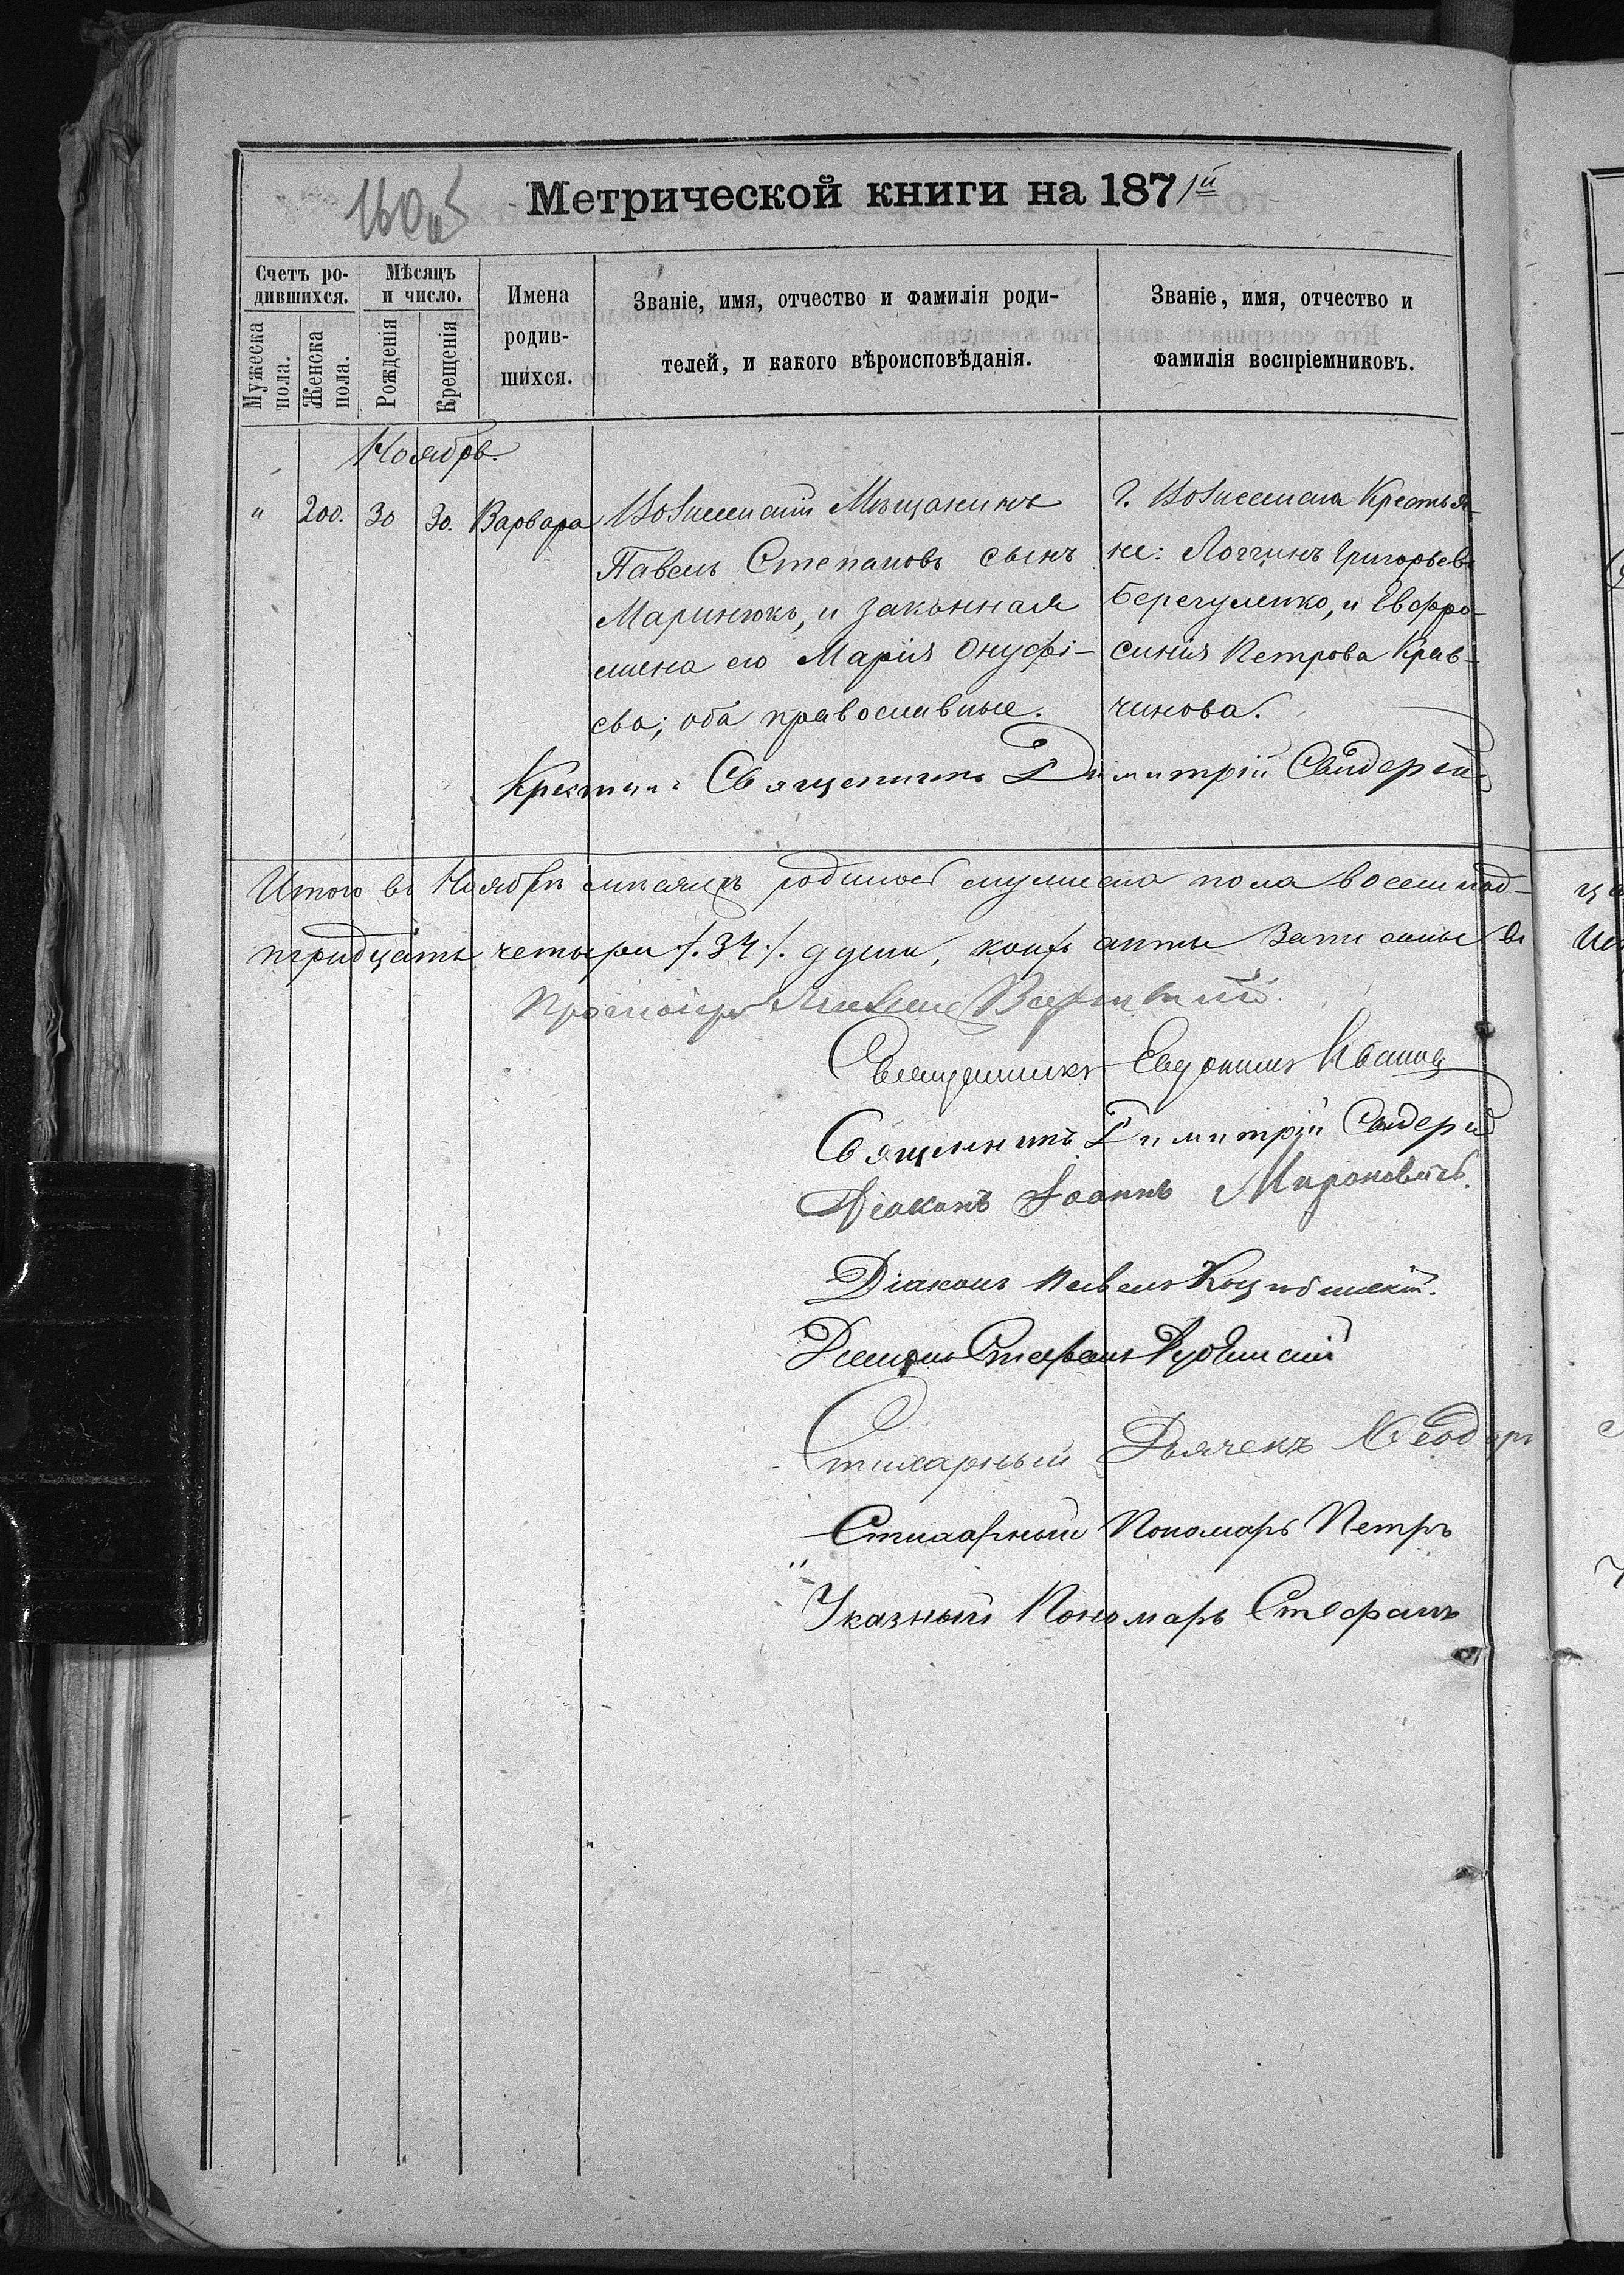 160 об
Метрической книги на 1871й
Счетъ ро-
дившихся.
Мужеска
пола.
Женска
пола.
Мѣсяцъ
и число.
Рожденія
Крещенія
Имена
родив-
шихся.
Званіе, имя, отчество и фамилія роди-
телей, и какого вѣроисповѣданія.
Званіе, имя, отчество и
фамилія воспріемниковъ.
Ноябрь.
" 200. 30 30. Варвара
Вознесенскій Мѣщанинъ
Павелъ Степановъ сынъ
Маринюкъ, и законная
жена его Марія Онуфрі-
ева; оба православные.
г. Вознесенска Крестья-
не: Логгинъ Григорьевъ
Берегуленко, и Евфро-
синія Петрова Крав-
чинова.
Крестилъ Священникъ Димитрій
Итого въ Ноябрѣ мѣсяцѣ родилось мужеска пола восемнад-
тридцать четыре /.34./. души, коихъ акты записаны въ
Протоіерей
Священникъ Евдокимъ
Священникъ Димитрій
Діаконъ Іоаннъ Мироновичъ.
Діаконъ Павелъ
Діаконъ Стефанъ
Стихарный Дьячекъ Ѳеодоръ
Стихарный Пономарь Петръ
" Указный Пономарь Стефанъ